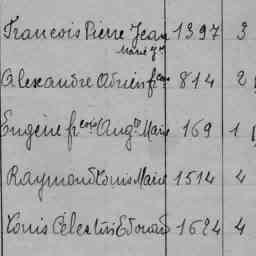 Francois Pierre Jean 1397 3
Marie Jh
Alexandre Adrien fcois 814 2
Eugène fcois Augte Marie 169 1
Raymond Louis Marie 1514 4
Louis Célestin Edouard 1624 4